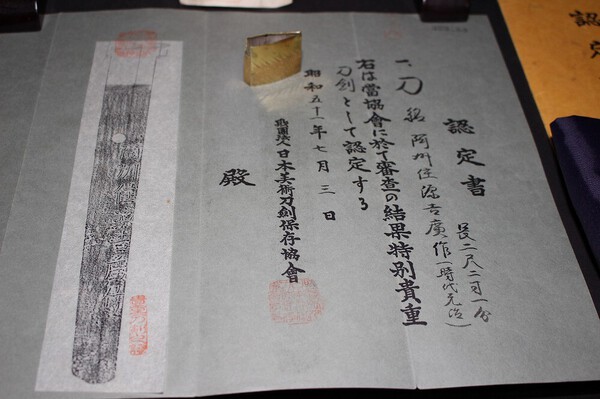 認定書
一、刀 銘 阿州住源吉廣作(時代元治)
長二尺二寸一分
右は當協會に於て審査の結果特別貴重
刀劍として認定する
昭和五十一年七月三日
財團法人日本美術刀劍保存協會
殿
認定